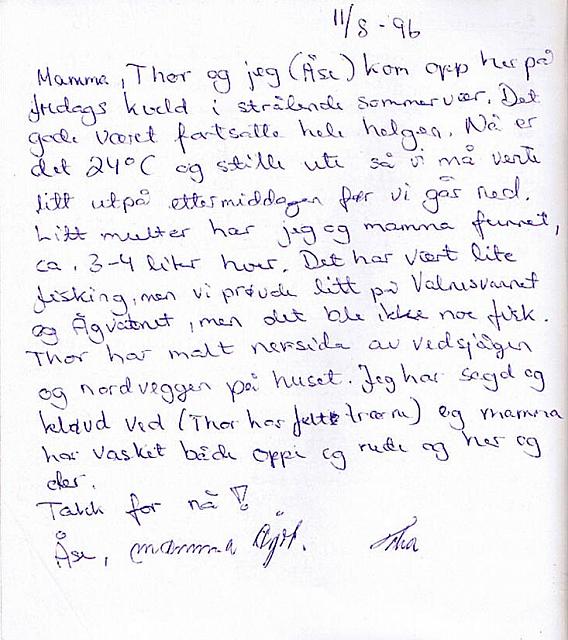 11/8-96
Mamma, Thor og jeg (Åse) kom opp her på
fredags kveld i strålende sommervær. Det
gode været fortsatte hele helgen. Nå er
det 24°C og stille ute så vi må vente
litt utpå ettermiddagen før vi går ned.
Litt multer har jeg og mamma funnet,
ca. 3-4 liter hver. Det har vært lite
fisking, men vi prøvde litt på Valnesvannet
og Ågvatnet, men det ble ikke noe fisk.
Thor har malt nersida av vedsjågen
og nordveggen på huset. Jeg har sagd og
kløvd ved (Thor har felt trærne) og mamma
har vasket både oppe og nede og her og
der.
Takk for nå!
Åse, mamma